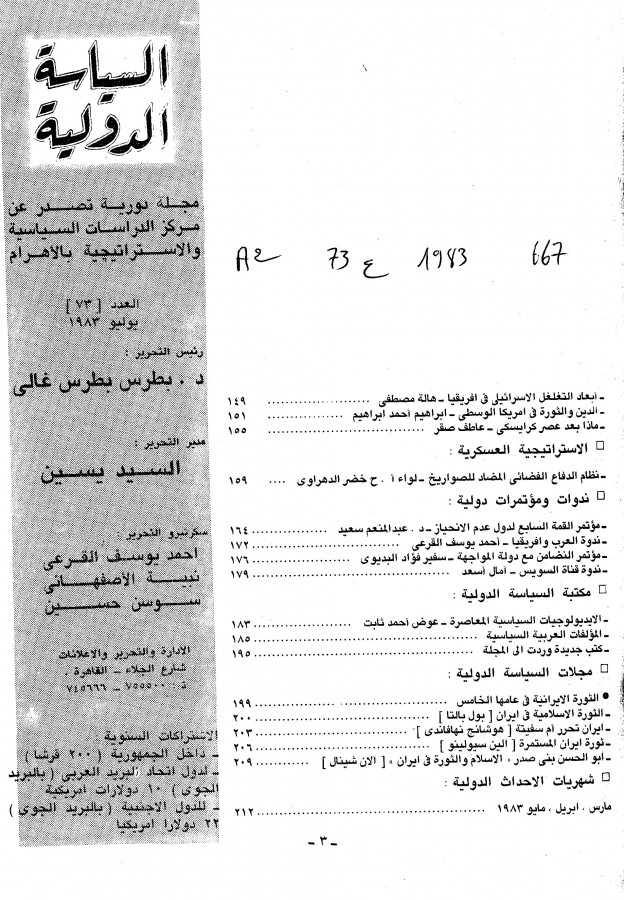 السياسة
الدولية
مجلة دورية تصدر عن
مركز الدراسات السياسية
والاستراتيجية بالأهرام
العدد [ ٧٣ ]
يوليو ١٩٨٣
رئيس التحرير :
د . بطرس بطرس غالى
مدير التحرير :
السيد يسين
سكرتيرو التحرير :
احمد يوسف القرعى
نبية الأصفهانى
سوسن حسين
الادارة والتحرير والاعلانات
شارع الجلاء ــ القاهرة .
ت : ٧٥٥٥٠٠ ــ ٧٤٥٦٦٦
الاشتراكات السنوية
ــ داخل الجمهورية ( ٢٠٠ قرشا )
ــ لدول اتحاد البريد العربى ( بالبريد
الجوى ) ١٠ دولارات امريكية
ــ للدول الأجنبية ( بالبريد الجوى )
٢٢ دولارا امريكيا
A2 73 ع 1983 667
ــ أبعاد التغلغل الاسرائيلى فى افريقيا ــ هالة مصطفى ........................ ١٤٩
ــ الدين والثورة فى امريكا الوسطى ــ ابراهيم أحمد ابراهيم .................. ١٥١
ــ ماذا بعد عصر كرايسكى ــ عاطف صقر ........................ ١٥٥
□ الاستراتيجية العسكرية :
ــ نظام الدفاع الفضائى المضاد للصواريخ ــ لواء أ . ح خضر الدهراوى .... ١٥٩
□ ندوات ومؤتمرات دولية :
ــ مؤتمر القمة السابع لدول عدم الانحياز ــ د . عبدالمنعم سعيد ............ ١٦٤
ــ ندوة العرب وافريقيا ــ أحمد يوسف القرعى ........................ ١٧٢
ــ مؤتمر التضامن مع دولة المواجهة ــ سفير فؤاد البديوى ................ ١٧٦
ــ ندوة قناة السويس ــ آمال أسعد ........................ ١٧٩
□ مكتبة السياسة الدولية :
ــ الايديولوجيات السياسية المعاصرة ــ عوض أحمد ثابت .............. ١٨٣
ــ المؤلفات العربية السياسية ........................ ١٨٥
ــ كتب جديدة وردت الى المجلة ........................ ١٩٥
□ مجلات السياسة الدولية :
● الثورة الايرانية فى عامها الخامس ........................ ١٩٩
ــ الثورة الاسلامية فى ايران [ بول بالتا ] ........................ ٢٠٠
ــ ايران تحرر أم سفيتة [ هوشانج نهافاندى ] ........................ ٢٠٣
ــ ثورة ايران المستمرة [ الين سيولينو ] ........................ ٢٠٦
ــ ابو الحسن بنى صدر « الاسلام والثورة فى ايران » [ الان شينال ] .......... ٢٠٩
□ شهريات الاحداث الدولية :
مارس ، ابريل ، مايو ١٩٨٣ ........................ ٢١٢
ــ ٣ ــ